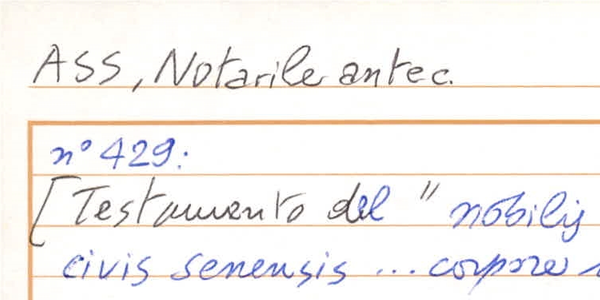 ASS, Notarile antec.
n° 429:
[Testamento del " nobilis
civis senensis ... corpore